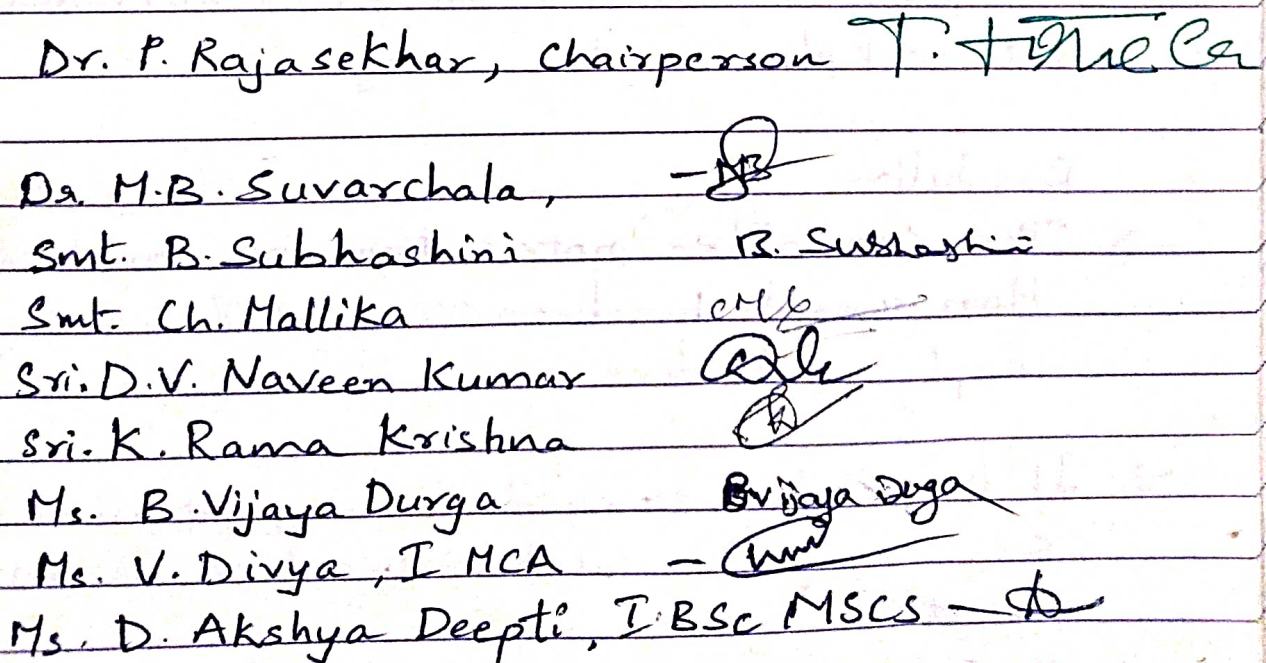 Dr. P. Rajasekhar, Chairperson
Dr. M.B. Suvarchala,
Smt. B. Subhashini B. Subhashini
Smt. Ch. Mallika
Sri. D.V. Naveen Kumar
Sri. K. Rama Krishna
Ms. B. Vijaya Durga B Vijaya Duga
Ms. V. Divya, I MCA
Ms. D. Akshya Deepti, I BSc MSCS